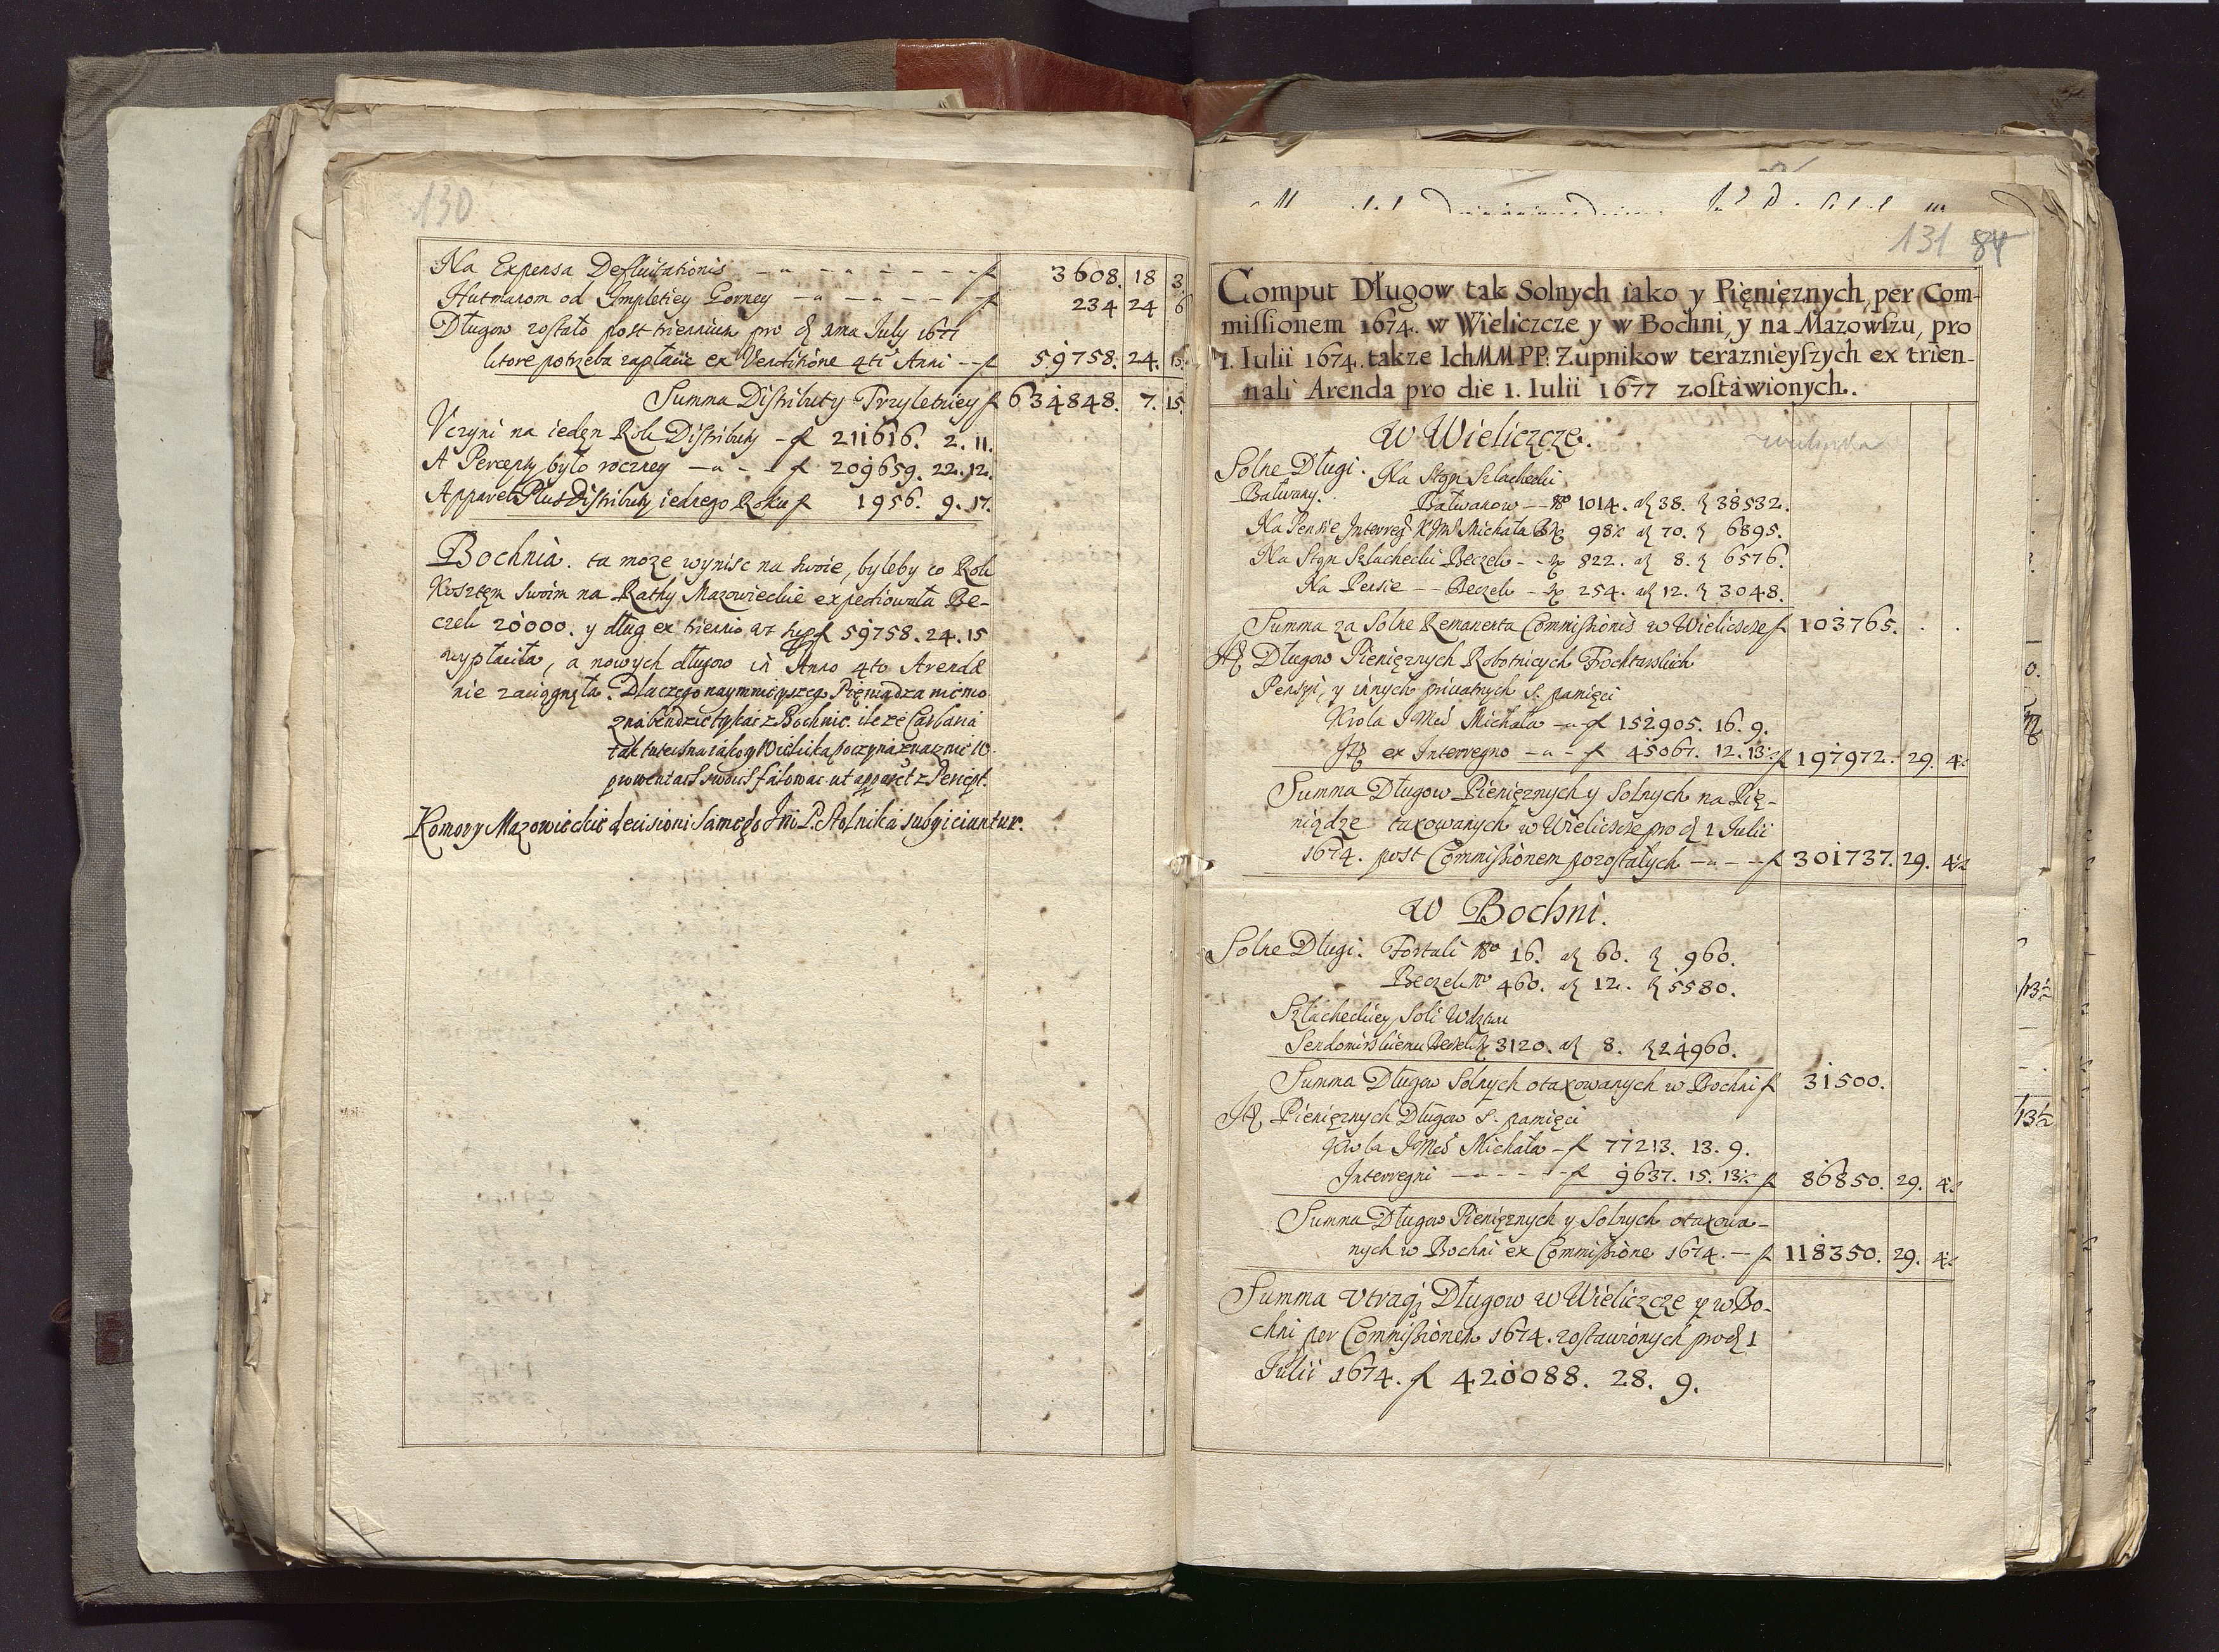 130
Na Expensa Defluitationis — f 3608. 18 3
Hutmanom od Impletiey Gorney — f 234 24 6
Długow zostało post triennium pro d 1ma July 1677
ktore potrzeba zapłacić ex Venditione 4ti Anni -- f 59758. 24. 15.
Summa Distributy Trzyletniey f 634848. 7. 15.
Vczyni na ieden Rok Distributy - f 211616. 2. 11.
A Percepty było roczney — f 209659. 22. 12.
Apparet Plus Distributy iednego Roku f 1956. 9. 17.
Bochnia. ta moze wyniść na swoie, byleby co Rok
Kosztem swoim na Rathy Mazowieckie expediowała Be-
czek 20000. y dług ex triennio f 59758. 24. 15
wypłaciła, a nowych długow in Anno 4to Arendæ
nie zaciągnęła. Dlaczego naymnieyszego Pieniądza nie mo-
zna będzie tykać z Bochnie. ile ze Carbaria
tak tuteczna iako y Wielicka poczyna znacznie w
prowentach swoich falować ut apparet z Percept.
Komory Mazowieckie decisioni Samego Jm P. Stolnika subyiciuntur.
131 84
Comput Długow tak Solnych iako y Pięnięznych per Com-
missionem 1674. w Wieliczcze y w Bochni, y na Mazowszu, pro
1. Iulii 1674. takze IchMM PP. Zupnikow teraznieyszych ex trien-
nali Arenda pro die 1. Iulii 1677 zostawionych.
W Wieliczcze.
Solne Długi. Na Stgn Szlachecki
Bałwany. Bałwanow — No 1014. a 38. f 38532.
Na Pensie Interreg K Jmci Michała 98½ a 70. f 6895.
Na Stgn Szlachecki Beczek - - 822. a 8. f 6576.
Na Pensie -- Beczek - 254. a 12. f 3048.
Summa za Solne Remanenta Commissionis w Wieliczcze f 103765. . .
Długow Pieniężnych Robotnicych Fochtarskich
Pensyi, y innych priuatnych S. pamięci
Krola JMci Michała — f 152905. 16. 9.
ex Interregno — f 45067. 12. 13½ f 197972. 29. 4½
Summa Długow Pieniężnych y Solnych na Pię-
niądze taxowanych w Wieliczcze pro d 1 Julii
1674. post Commissionem pozostałych — f 301737. 29. 4½
W Bochni.
Solne Długi. Fortali No 16. a 60. f 960.
Beczek No 460. a 12. f 5580.
Szlacheckiey Soli Wdztwu
Sendomirskiemu Beczek 3120. a 8. f 24960.
Summa Długow Solnych otaxowanych w Bochni f 31500.
Pieniężnych Długow S. pamięci
Krola JMci Michała - f 77213. 13. 9.
Interregni — f 9637. 15. 13½ f 86850. 29. 4½
Summa Długow Pieniężnych y Solnych otaxowa-
nych w Bochni ex Commissione 1674. — f 118350. 29. 4½
Summa Vtraq Długow w Wieliczcze y w Bo-
chni per Commissionem 1674. zostawionych pro d 1
Julii 1674. f 420088. 28. 9.